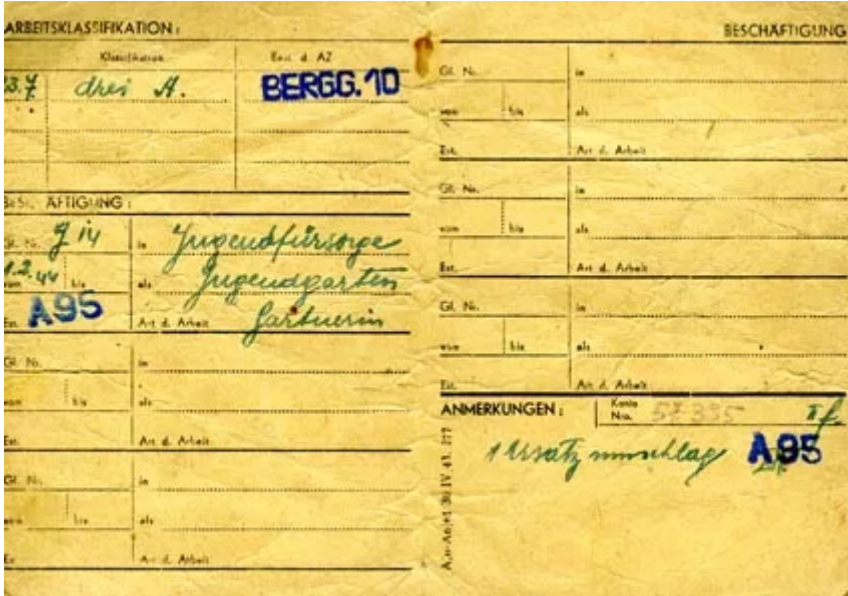 ARBEITSKLASSIFIKATION:
Klassifikation Est. d. AZ
3.7 drei A. BERGG. 10
BESCHÄFTIGUNG:
Gl. Nr. J 14 in Jugendfürsorge
1.2.44 bis als Jugendgarten
von
Est. A95 Art d. Arbeit Gärtnerin
Gl. Nr. in
von bis als
Est. Art d. Arbeit
Gl. Nr. in
von bis als
Est. Art d. Arbeit
BESCHÄFTIGUNG
Gl. Nr. in
von bis als
Est. Art d. Arbeit
Gl. Nr. in
von bis als
Est. Art d. Arbeit
Gl. Nr. in
von bis als
Est. Art d. Arbeit
ANMERKUNGEN: Konto Nro. 57335
1 Ersatzumschlag A95